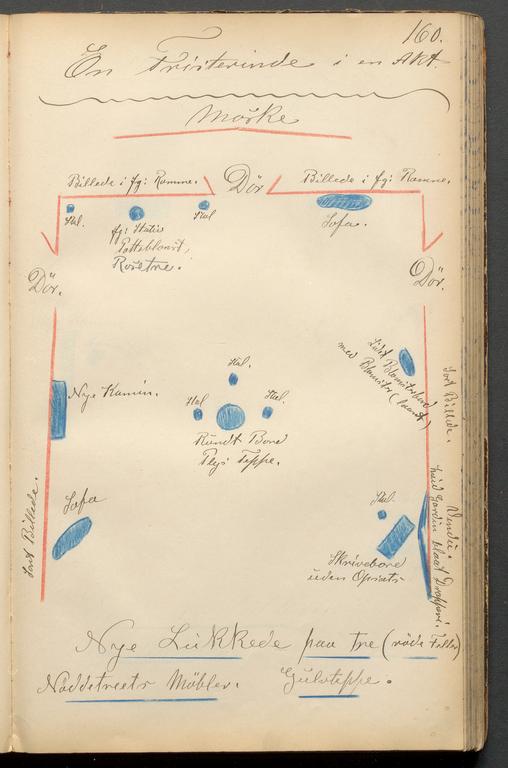 160.
En Fristerinde i en Akt.
Mörke
Billede i fg: Ramme.
Dör
Billede i fg: Ramme.
Stol.
Stol
fg: Stativ
Potteblomst,
Rosetræ.
Sofa.
Dör.
Dör.
Lidt Blomsterbord
med Blomster
Sort Billede.
Nye Kamin.
Stol.
Stol
Stol.
Rundt Bord
Plys Teppe.
Sofa
Sort Billede.
Stol.
Skrivebord
uden Opsats
Vindu:
hvid Gardin blaat Draperi.
Nye Lukkede paa tre (röde Felter)
Nöddetræets Möbler. Gulvteppe.